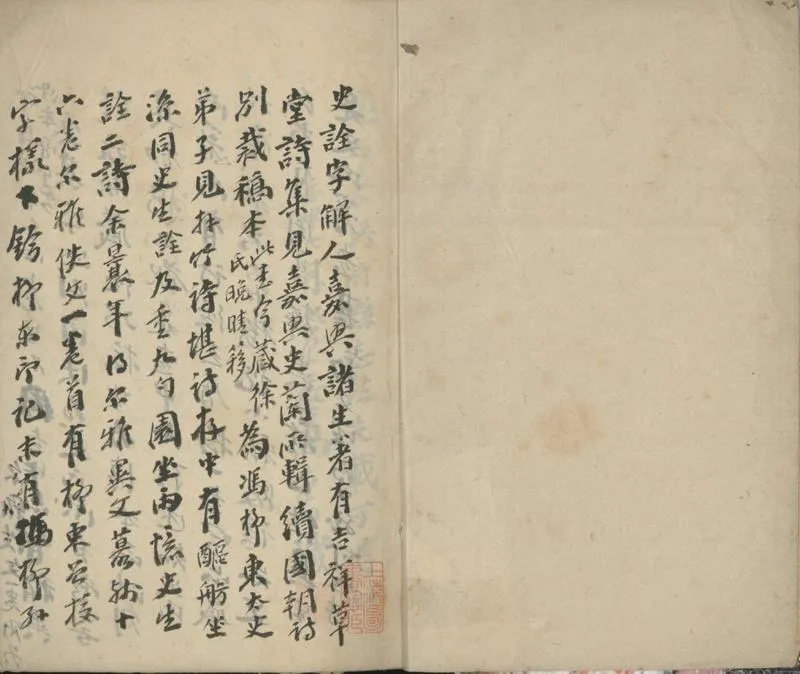 史詮字解人嘉興諸生著有吉祥草
堂詩集見嘉興史蘭所輯續國朝詩
別裁稿本此書今藏徐氏晚晴簃為馮柳東太史
弟子見拜竹詩堪詩存中有醧舫坐
涼同史生詮及重九勺園坐雨憶史生
詮二詩余曩年得尔雅異文十
六卷尔雅佚文一卷首有柳東公校
字樣下鈐柳東印記末有馮柳孫